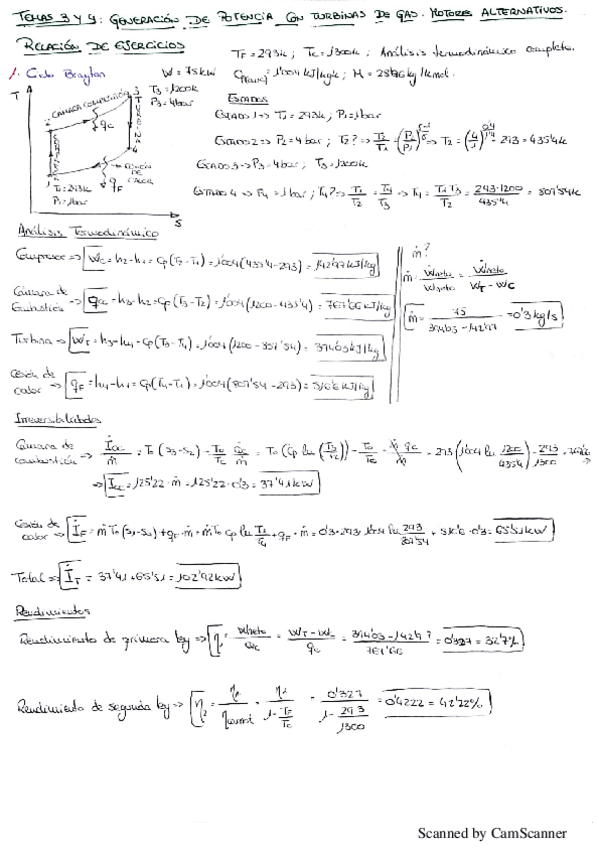 TEMAS 3 Y 4: GENERACIÓN DE POTENCIA CON TURBINAS DE GAS. MOTORES ALTERNATIVOS.
RELACIÓN DE EJERCICIOS
TF = 293K; TC = 1300K; Análisis termodinámico completo.
1. Ciclo Brayton W = 75kW Cp(aire) = 1'004 kJ/kgK; M = 28'96 kg/kmol.
T3 = 1200K
P3 = 4bar
T
CÁMARA COMBUSTIÓN
3
TURBINA
qC
2
4
CESIÓN DE CALOR
1
qF
T1 = 293K
P1 = 1bar
S
ESTADOS
ESTADO 1 => T1 = 293K; P1 = 1bar
ESTADO 2 => P2 = 4bar; T2? => T2/T1 = (P2/P1)^ => T2 = (4/1)^0'4/1'4 · 293 = 435'4K
ESTADO 3 -> P3 = 4bar; T3 = 1200K
ESTADO 4 => P4 = 1bar; T4? => T1/T2 = T4/T3 => T4 = T1·T3/T2 = 293·1200/435'4 = 807'54K
Análisis Termodinámico
Compresor => WC = h2-h1 = Cp(T2-T1) = 1'004(435'4-293) = 142'97 kJ/kg
Cámara de Combustión => qC = h3-h2 = Cp(T3-T2) = 1'004(1200-435'4) = 767'66 kJ/kg
Turbina => WT = h3-h4 = Cp(T3-T4) = 1'004(1200-807'54) = 394'03 kJ/kg
Cesión de calor -> qF = h4-h1 = Cp(T4-T1) = 1'004(807'54-293) = 516'6 kJ/kg
ṁ?
ṁ = Wneto/wneto = Wneto/(WT-WC)
ṁ = 75/(394'03-142'97) = 0'3 kg/s
Irreversibilidades
Cámara de combustión -> ICC/ṁ = T0(s3-s2) - T0/TC QC/ṁ = T0(Cp ln(T3/T2)) - T0/TC · ṁ qC/ṁ = 293(1'004 ln 1200/435'4) - 293/1300 ·
=> ICC = 125'22 · ṁ = 125'22 · 0'3 = 37'41kW
Cesión de calor => IF = ṁT0(s1-s4) + qF·ṁ = ṁT0 Cp ln T1/T4 + qF·ṁ = 0'3·293·1'004 ln 293/807'54 + 516'6·0'3 = 65'51kW
Total => IT = 37'41 + 65'51 = 102'92kW
Rendimientos
Rendimiento de primera ley => η1 = Wneto/qC = (WT-WC)/qC = (394'03-142'97)/767'66 = 0'327 = 32'7%
Rendimiento de segunda ley => η2 = η1/ηcarnot = η1/(1-TF/TC) = 0'327/(1-293/1300) = 0'4222 = 42'22%
Scanned by CamScanner